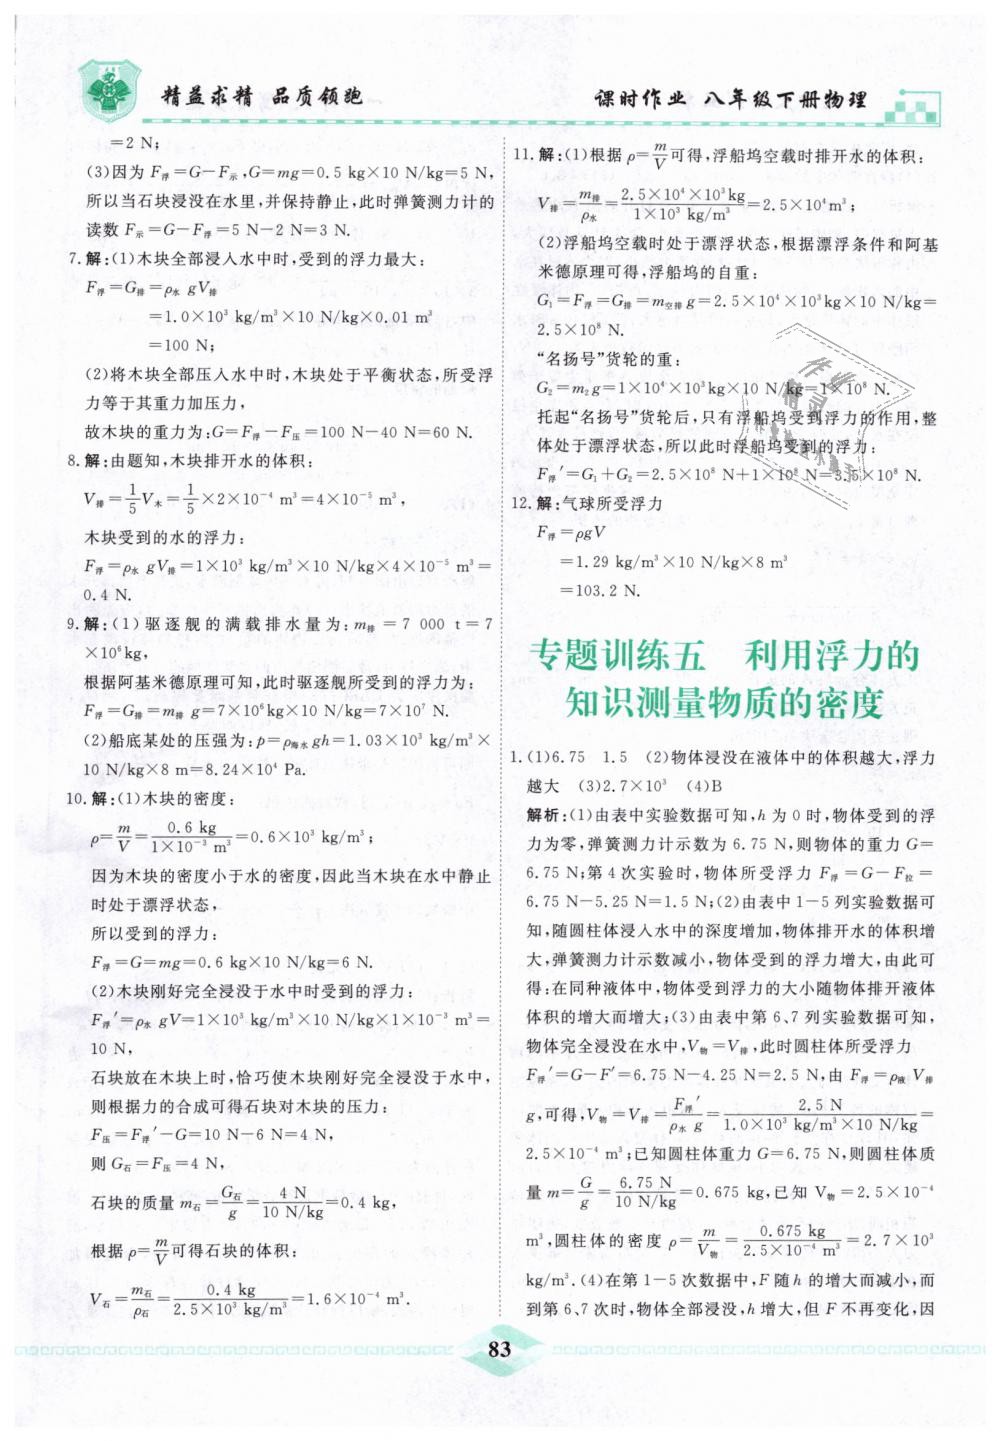 精益求精 品质领跑
课时作业 八年级下册物理
=2 N;
(3)因为 F浮=G-F示,G=mg=0.5 kg×10 N/kg=5 N,
所以当石块浸没在水里,并保持静止,此时弹簧测力计的
读数 F示=G-F浮=5 N-2 N=3 N.
7.解:(1)木块全部浸入水中时,受到的浮力最大:
F浮=G排=ρ水 gV排
=1.0×10³ kg/m³×10 N/kg×0.01 m³
=100 N;
(2)将木块全部压入水中时,木块处于平衡状态,所受浮
力等于其重力加压力,
故木块的重力为:G=F浮-F压=100 N-40 N=60 N.
8.解:由题知,木块排开水的体积:
V排=1/5 V木=1/5×2×10⁻⁴ m³=4×10⁻⁵ m³,
木块受到的水的浮力:
F浮=ρ水 gV排=1×10³ kg/m³×10 N/kg×4×10⁻⁵ m³=
0.4 N.
9.解:(1)驱逐舰的满载排水量为:m排=7 000 t=7
×10⁶kg,
根据阿基米德原理可知,此时驱逐舰所受到的浮力为:
F浮=G排=m排 g=7×10⁶kg×10 N/kg=7×10⁷ N.
(2)船底某处的压强为:p=ρ海水 gh=1.03×10³ kg/m³×
10 N/kg×8 m=8.24×10⁴ Pa.
10.解:(1)木块的密度:
ρ=m/V=0.6 kg/1×10⁻³ m³=0.6×10³ kg/m³;
因为木块的密度小于水的密度,因此当木块在水中静止
时处于漂浮状态,
所以受到的浮力:
F浮=G=mg=0.6 kg×10 N/kg=6 N.
(2)木块刚好完全浸没于水中时受到的浮力:
F浮′=ρ水 gV=1×10³ kg/m³×10 N/kg×1×10⁻³ m³=
10 N,
石块放在木块上时,恰巧使木块刚好完全浸没于水中,
则根据力的合成可得石块对木块的压力:
F压=F浮′-G=10 N-6 N=4 N,
则 G石=F压=4 N,
石块的质量 m石=G石/g=4 N/10 N/kg=0.4 kg,
根据 ρ=m/V可得石块的体积:
V石=m石/ρ石=0.4 kg/2.5×10³ kg/m³=1.6×10⁻⁴ m³.
11.解:(1)根据 ρ=m/V可得,浮船坞空载时排开水的体积:
V排=m排/ρ水=2.5×10⁴×10³kg/1×10³ kg/m³=2.5×10⁴m³;
(2)浮船坞空载时处于漂浮状态,根据漂浮条件和阿基
米德原理可得,浮船坞的自重:
G₁=F浮=G排=m空排 g=2.5×10⁴×10³kg×10 N/kg=
2.5×10⁸ N.
“名扬号”货轮的重:
G₂=m₂g=1×10⁴×10³kg×10 N/kg=1×10⁸ N.
托起“名扬号”货轮后,只有浮船坞受到浮力的作用,整
体处于漂浮状态,所以此时浮船坞受到的浮力:
F浮′=G₁+G₂=2.5×10⁸ N+1×10⁸ N=3.5×10⁸ N.
12.解:气球所受浮力
F浮=ρgV
=1.29 kg/m³×10 N/kg×8 m³
=103.2 N.
专题训练五 利用浮力的
知识测量物质的密度
1.(1)6.75 1.5 (2)物体浸没在液体中的体积越大,浮力
越大 (3)2.7×10³ (4)B
解析:(1)由表中实验数据可知,h 为 0 时,物体受到的浮
力为零,弹簧测力计示数为 6.75 N,则物体的重力 G=
6.75 N;第 4 次实验时,物体所受浮力 F浮=G-F拉=
6.75 N-5.25 N=1.5 N;(2)由表中 1-5 列实验数据可
知,随圆柱体浸入水中的深度增加,物体排开水的体积增
大,弹簧测力计示数减小,物体受到的浮力增大,由此可
得:在同种液体中,物体受到浮力的大小随物体排开液体
体积的增大而增大;(3)由表中第 6、7 列实验数据可知,
物体完全浸没在水中,V物=V排,此时圆柱体所受浮力
F浮′=G-F′=6.75 N-4.25 N=2.5 N,由 F浮=ρ液 V排
g,可得,V物=V排=F浮′/ρ水 g=2.5 N/1.0×10³ kg/m³×10 N/kg=
2.5×10⁻⁴ m³;已知圆柱体重力 G=6.75 N,则圆柱体质
量 m=G/g=6.75 N/10 N/kg=0.675 kg,已知 V物=2.5×10⁻⁴
m³,圆柱体的密度 ρ=m/V物=0.675 kg/2.5×10⁻⁴ m³=2.7×10³
kg/m³.(4)在第 1-5 次数据中,F 随 h 的增大而减小,而
到第 6、7 次时,物体全部浸没,h 增大,但 F 不再变化,因
83